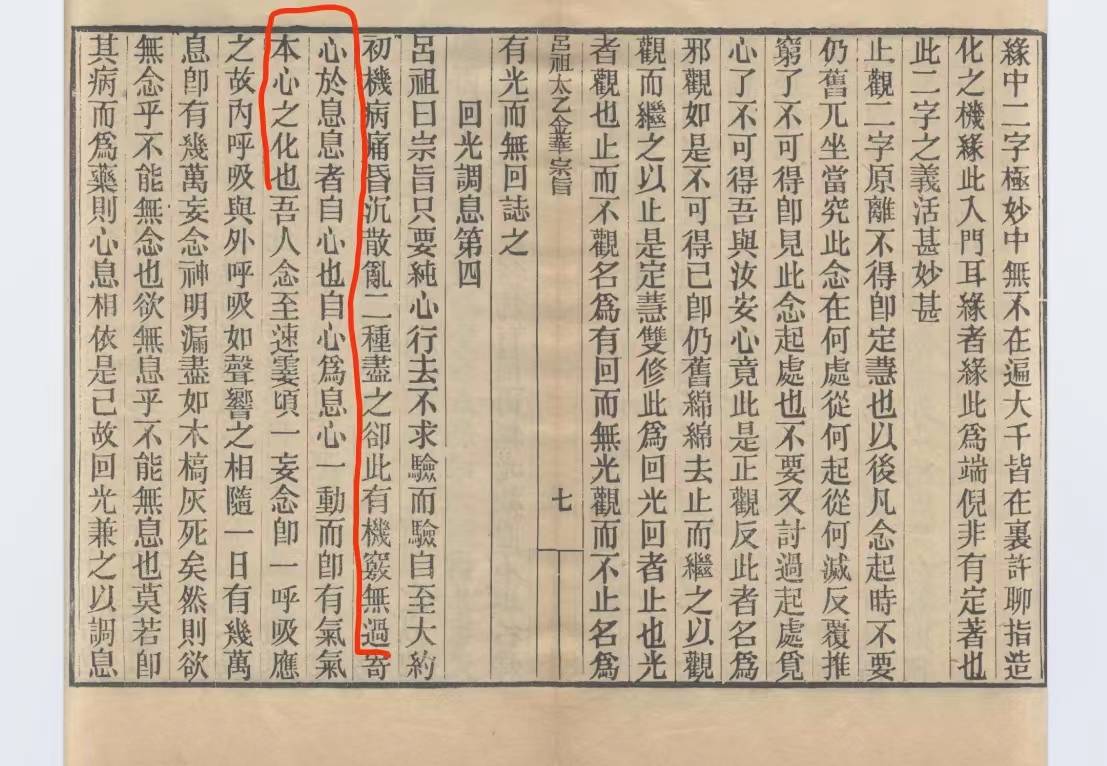 緣中二字極妙中無不在遍大千皆在裏許聊指造
化之機緣此入門耳緣者緣此爲端倪非有定著也
此二字之義活甚妙甚
止觀二字原離不得卽定慧也以後凡念起時不要
仍舊兀坐當究此念在何處從何起從何滅反覆推
窮了不可得卽見此念起處也不要又討過起處覓
心了不可得吾與汝安心竟此是正觀反此者名爲
邪觀如是不可得已卽仍舊綿綿去止而繼之以觀
觀而繼之以止是定慧雙修此爲回光回者止也光
者觀也止而不觀名爲有回而無光觀而不止名爲
呂祖太乙金華宗旨
七
有光而無回誌之
回光調息第四
呂祖曰宗旨只要純心行去不求驗而驗自至大約
初機病痛昏沉散亂二種盡之卻此有機竅無過寄
心於息息者自心也自心爲息心一動而卽有氣氣
本心之化也吾人念至速霎頃一妄念卽一呼吸應
之故內呼吸與外呼吸如聲響之相隨一日有幾萬
息卽有幾萬妄念神明漏盡如木槁灰死矣然則欲
無念乎不能無念也欲無息乎不能無息也莫若卽
其病而爲藥則心息相依是已故回光兼之以調息